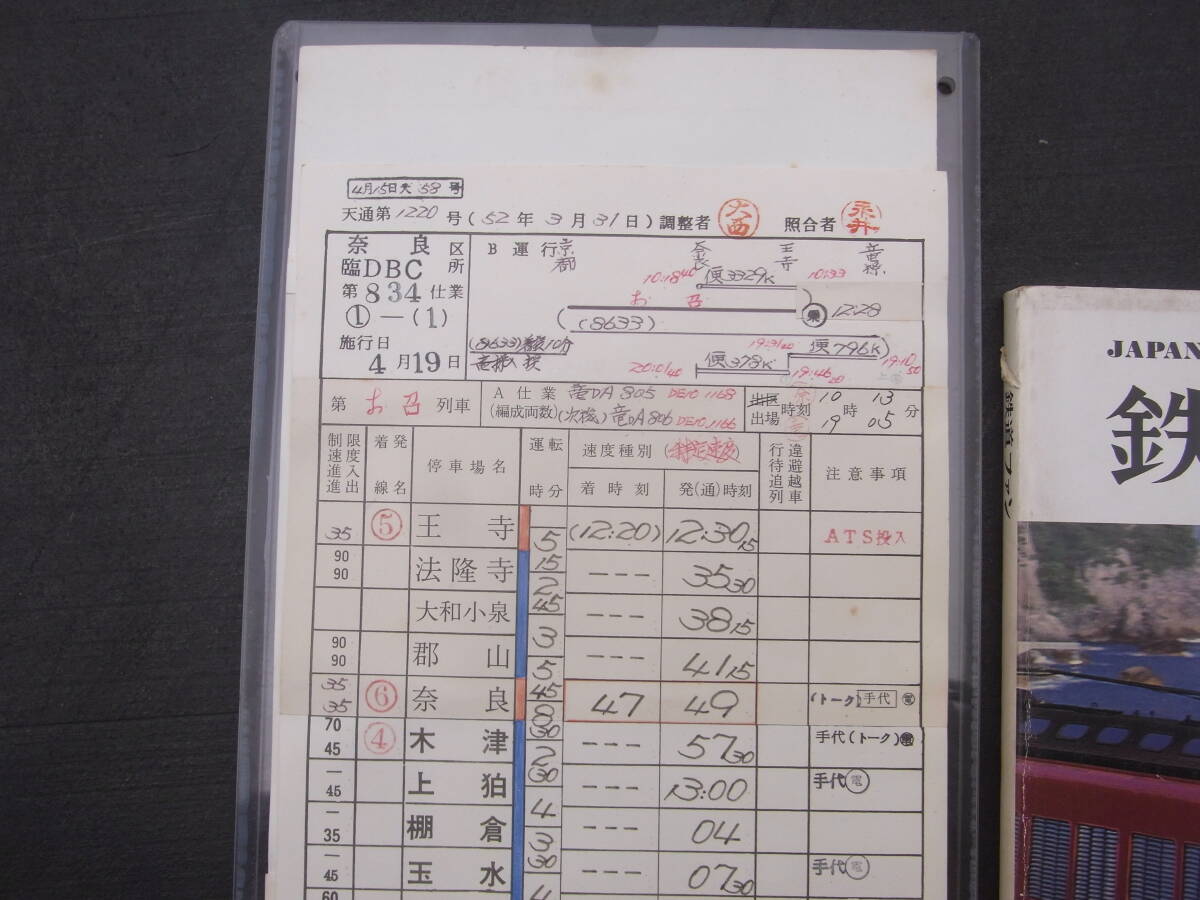 4月15日天58号
天通第1220号(52年3月31日)調整者 大西 照合者 永井
奈良区
臨DBC所
第834仕業
①―(1)
施行日
4月19日
B運行 京都 奈良 王寺
10:18 40 便3329k 10:33
お召
(8633)
乗 12:28
(8633) 10分
19:31 便796k 19:10 50
20:01 40 便378k 19:46 20
第 お召 列車
A仕業 竜DA805 DE10 1168
(編成両数)(次機)竜DA806 DE10 1166
出区 出場 時刻 10時13分
19 05
制限速度 進入 進出
着発線名
停車場名
運転時分
速度種別 (特定速度)
着時刻 発(通)時刻
行違 待避 追越 列車
注意事項
35 ⑤ 王寺 5 15 (12:20) 12:30 15 ATS投入
90 90 法隆寺 2 45 --- 35 30
大和小泉 3 --- 38 15
90 90 郡山 5 45 --- 41 15
35 35 ⑥ 奈良 8 30 47 49 (トーク) 手代 電
70 45 ④ 木津 2 30 --- 57 30 手代(トーク)
― 45 上狛 4 --- 13:00 手代 電
― 35 棚倉 3 30 --- 04
― 45 玉水 4 --- 07 30 手代 電
60
JAPAN
鉄
鉄道ファン